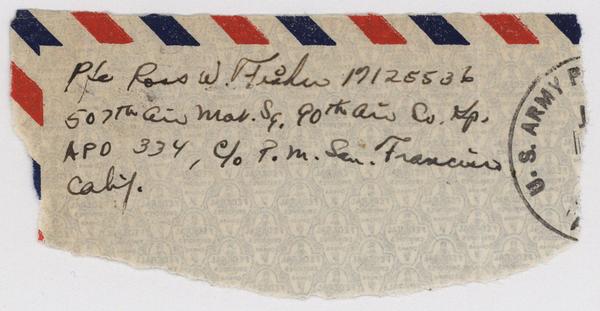 Pfc Ross W. Fisher 17125536
507th Air Mat. Sq. 90th Air Co. Gp.
APO 334, c/o P.M. San. Francisco
Calif.
U.S. ARMY P